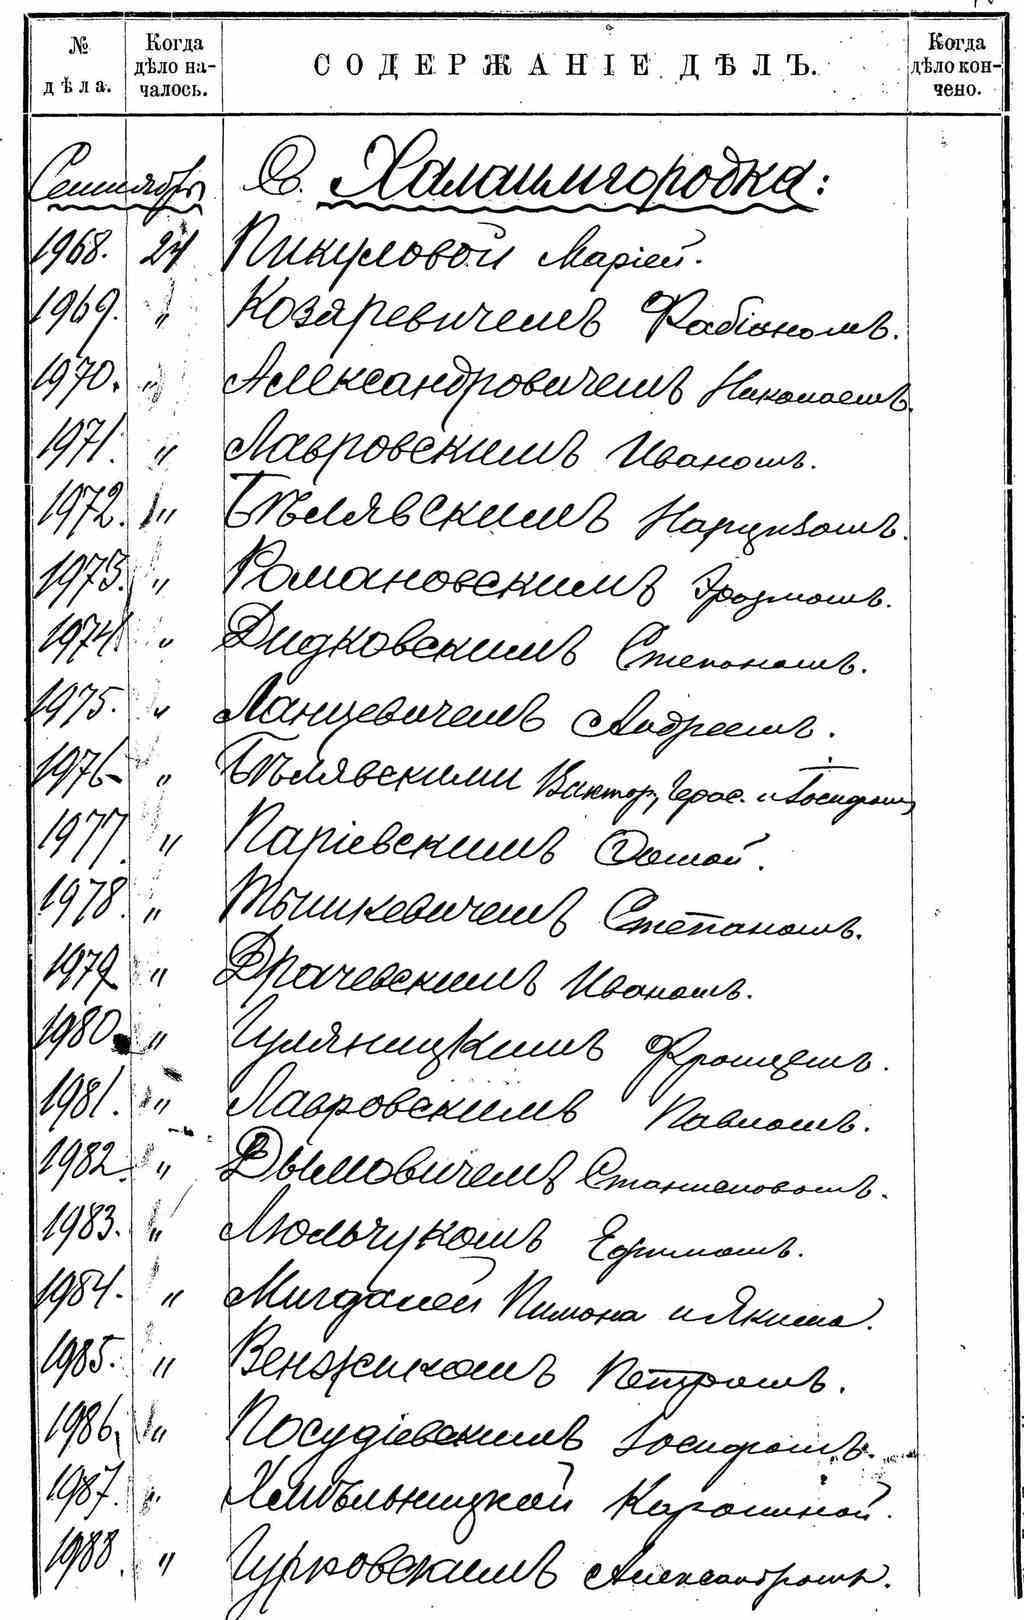 № дѣла.
Когда дѣло началось.
СОДЕРЖАНІЕ ДѢЛЪ.
Когда дѣло кончено.
Сентябрь С. Халаимгородка:
1968. 24 Пикуловой Маріей.
1969. " Козяревичемъ Фабіаномъ.
1970. " Александровичемъ Николаемъ.
1971. " Лавровскимъ Иваномъ.
1972. " Бѣлявскимъ Нарцизомъ.
1973. " Романовскимъ Эразмомъ.
1974 " Дидковскимъ Степаномъ.
1975. " Ланцевичемъ Андреемъ.
1976 " Бѣлявскими Виктор, Герас. и Іосифомъ
1977. " Паріевскимъ Ѳомой.
1978. " Тышкевичемъ Степаномъ.
1979 " Драчевскимъ Иваномъ.
1980. " Гуляницкимъ Францемъ.
1981. " Лавровскимъ Павломъ.
1982. " Дымовичемъ Станиславомъ.
1983. " Люльчукомъ Ефимомъ.
1984. " Мигдалей Пимона и Якима.
1985. " Венжикомъ Петромъ.
1986. " Посудіевскимъ Іосифомъ.
1987. " Хмѣльницкой Каролиной.
1988. " Гурковскимъ Александромъ.